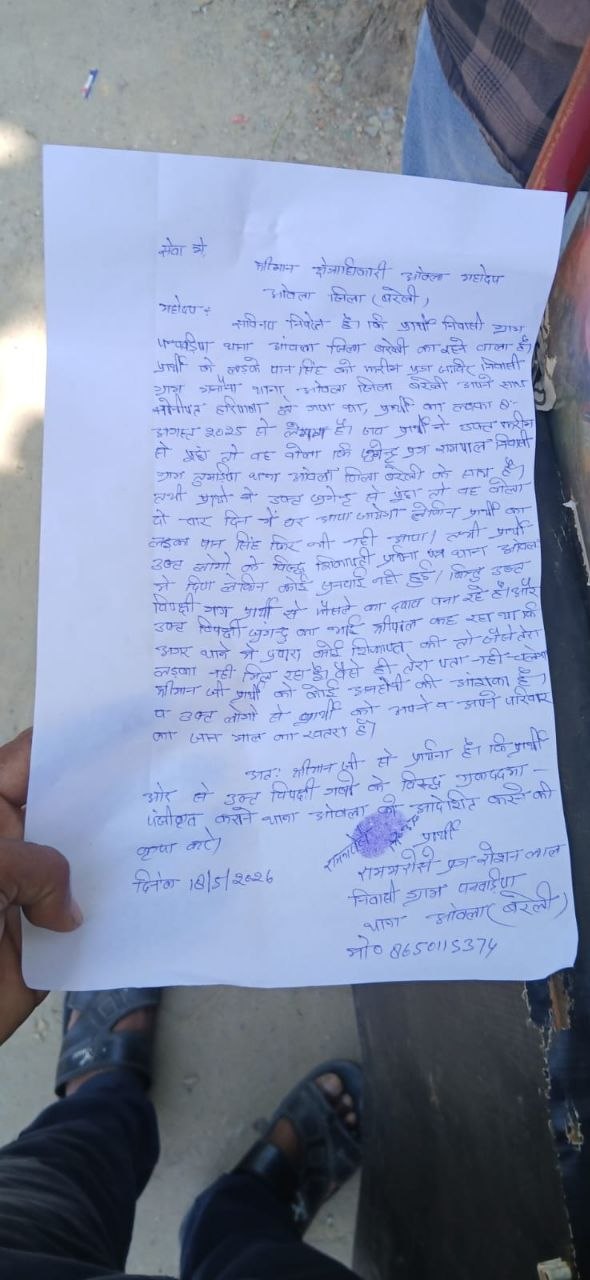 सेवा में,
श्रीमान क्षेत्राधिकारी आंवला महोदय
आंवला जिला (बरेली)
महोदय,
सविनय निवेदन है। कि प्रार्थी निवासी ग्राम
थाना आंवला जिला बरेली का रहने वाला है।
प्रार्थी के लड़के पान सिंह को पुत्र निवासी
ग्राम थाना आंवला जिला बरेली अपने साथ
सोनीपत हरियाणा ले गया था, प्रार्थी का लड़का 8-
अगस्त 2025 से लापता है। जब प्रार्थी ने उक्त
से पूंछा तो वह बोला कि पुत्र रामपाल निवासी
ग्राम थाना आंवला जिला बरेली के साथ है।
तभी प्रार्थी ने उक्त से पूंछा तो वह बोला
दो चार दिन में घर आ जायेगा लेकिन प्रार्थी का
लड़का पान सिंह फिर भी नहीं आया। तभी प्रार्थी
उक्त लोगों के विरुद्ध शिकायती प्रार्थना पत्र थाना आंवला
में दिया लेकिन कोई सुनवाई नहीं हुई। किन्तु उक्त
विपक्षी गण प्रार्थी से फैसले का दवाव बना रहे है। और
उक्त विपक्षी का भाई श्रीपाल कह रहा था कि
अगर थाने में दुवारा कोई शिकायत की तो जैसे तेरा
लड़का नहीं मिल रहा है। वैसे ही तेरा पता नहीं चलेगा
श्रीमान जी प्रार्थी को कोई अनहोनी की आशंका है।
व उक्त लोगों से प्रार्थी को अपने व अपने परिवार
का जान माल का खतरा है।
अतः श्रीमान जी से प्रार्थना है। कि प्रार्थी
ओर से उक्त विपक्षी गणों के विरुद्ध मुकद्दमा -
पंजीकृत कराने थाना आंवला को आदेशित करने की
कृपा करें।
प्रार्थी
दिनांक 18/5/2026
रामभरोसे पुत्र रोशन लाल
निवासी ग्राम
थाना आंवला (बरेली)
मो० 8650115374